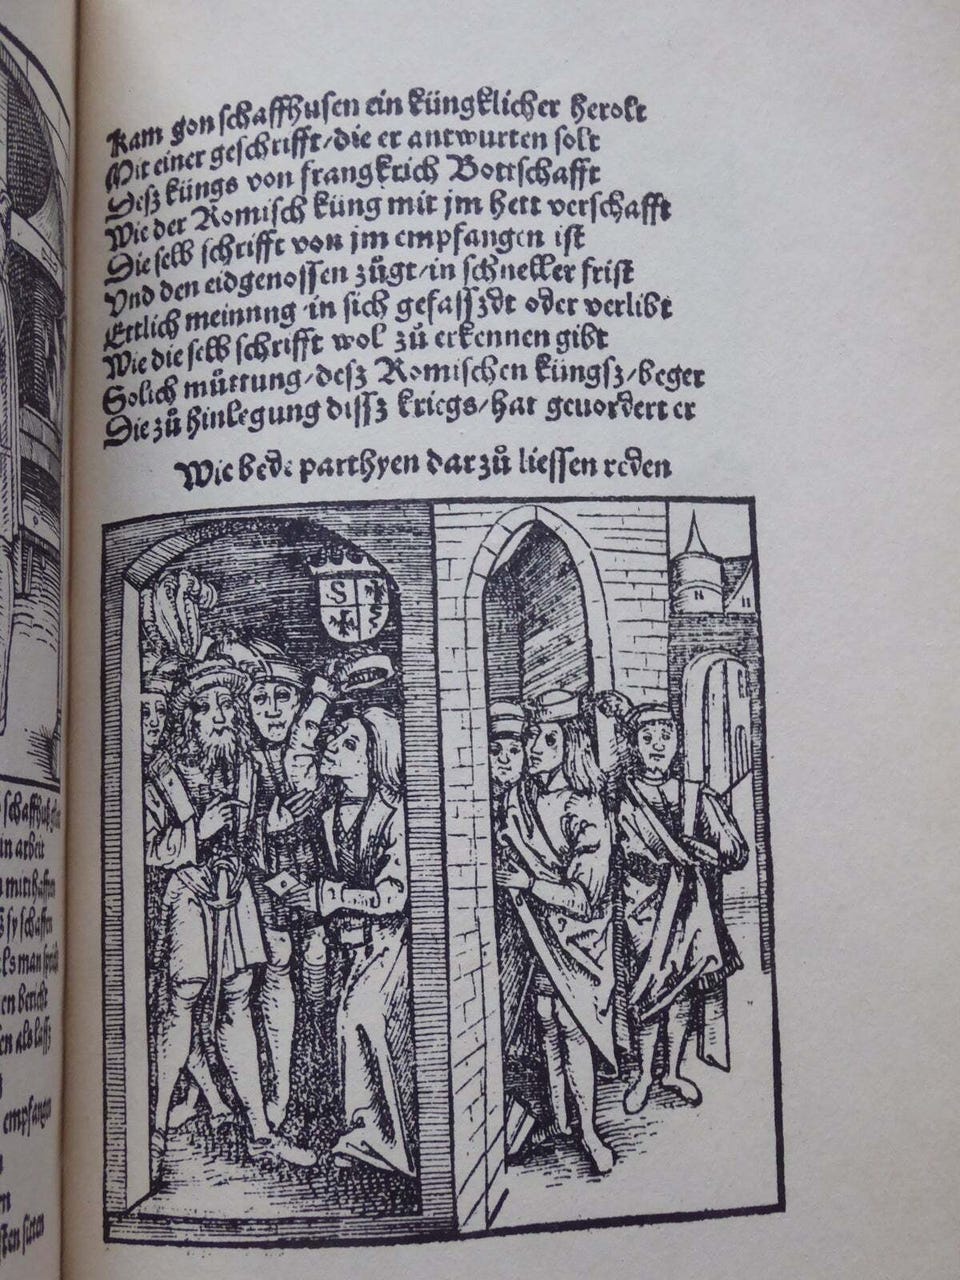 schaffhuß
in arbeit
mitthafften
sy schaffen
als man spricht
en bericht
en als lassz
empfangen
Kam gon schaffhusen ein küngklicher herolt
Mit einer geschrifft/die er antwurten solt
Desz küngs von frangkrich Bottschafft
Wie der Romisch küng mit jm hett verschafft
Die selb schrifft von jm empfangen ist
Vnd den eidgenossen zůgt/in schneller frist
Ettlich meinung in sich gefasszdt oder verlibt
Wie die selb schrifft wol zů erkennen gibt
Solich můttung/desz Romischen küngsz/beger
Die zů hinlegung dissz kriegs/hat geuordert er
Wie bede parthyen dar zů liessen reden
S